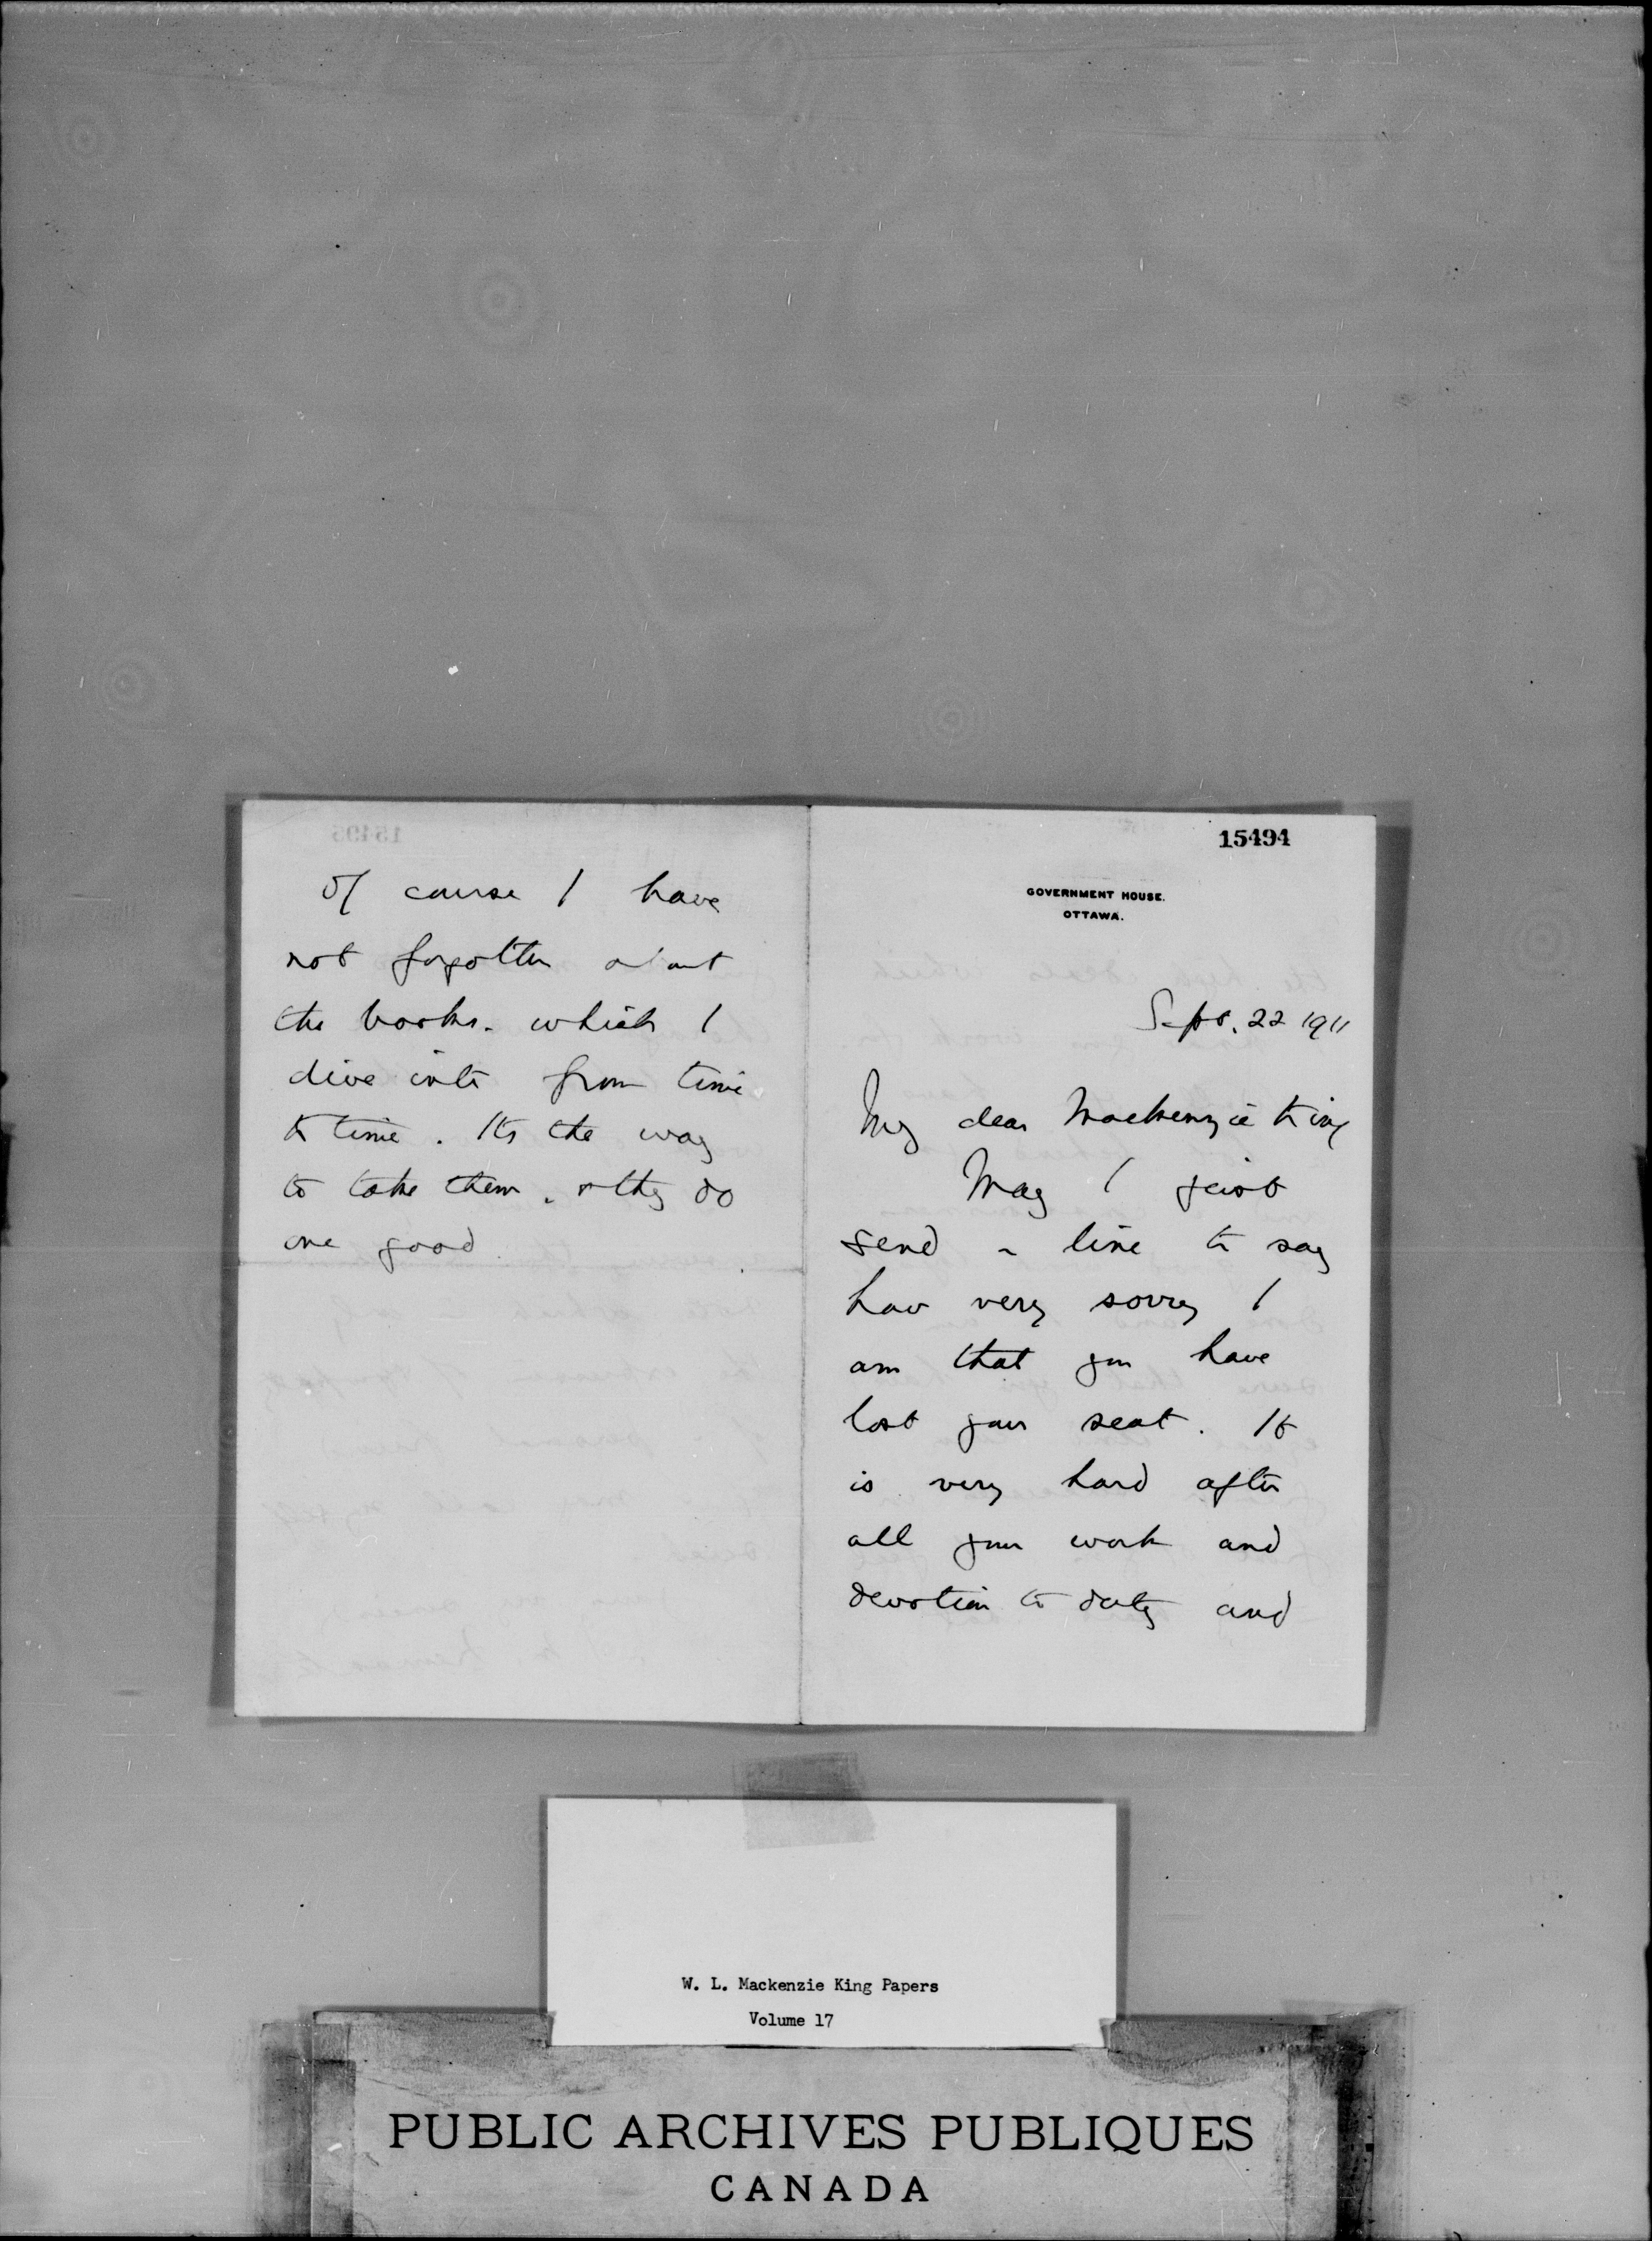 15494
GOVERNMENT HOUSE.
OTTAWA.
Sept. 22 1911
My dear Mackenzie King
May I just
send a line to say
how very sorry I
am that you have
lost your seat. It
is very hard after
all your work and
devotion to duty and
Of course I have
not forgotten about
the books. which I
dive into from time
to time. Its the way
to take them. & they do
one good
W. L. Mackenzie King Papers
Volume 17
PUBLIC ARCHIVES PUBLIQUES
CANADA